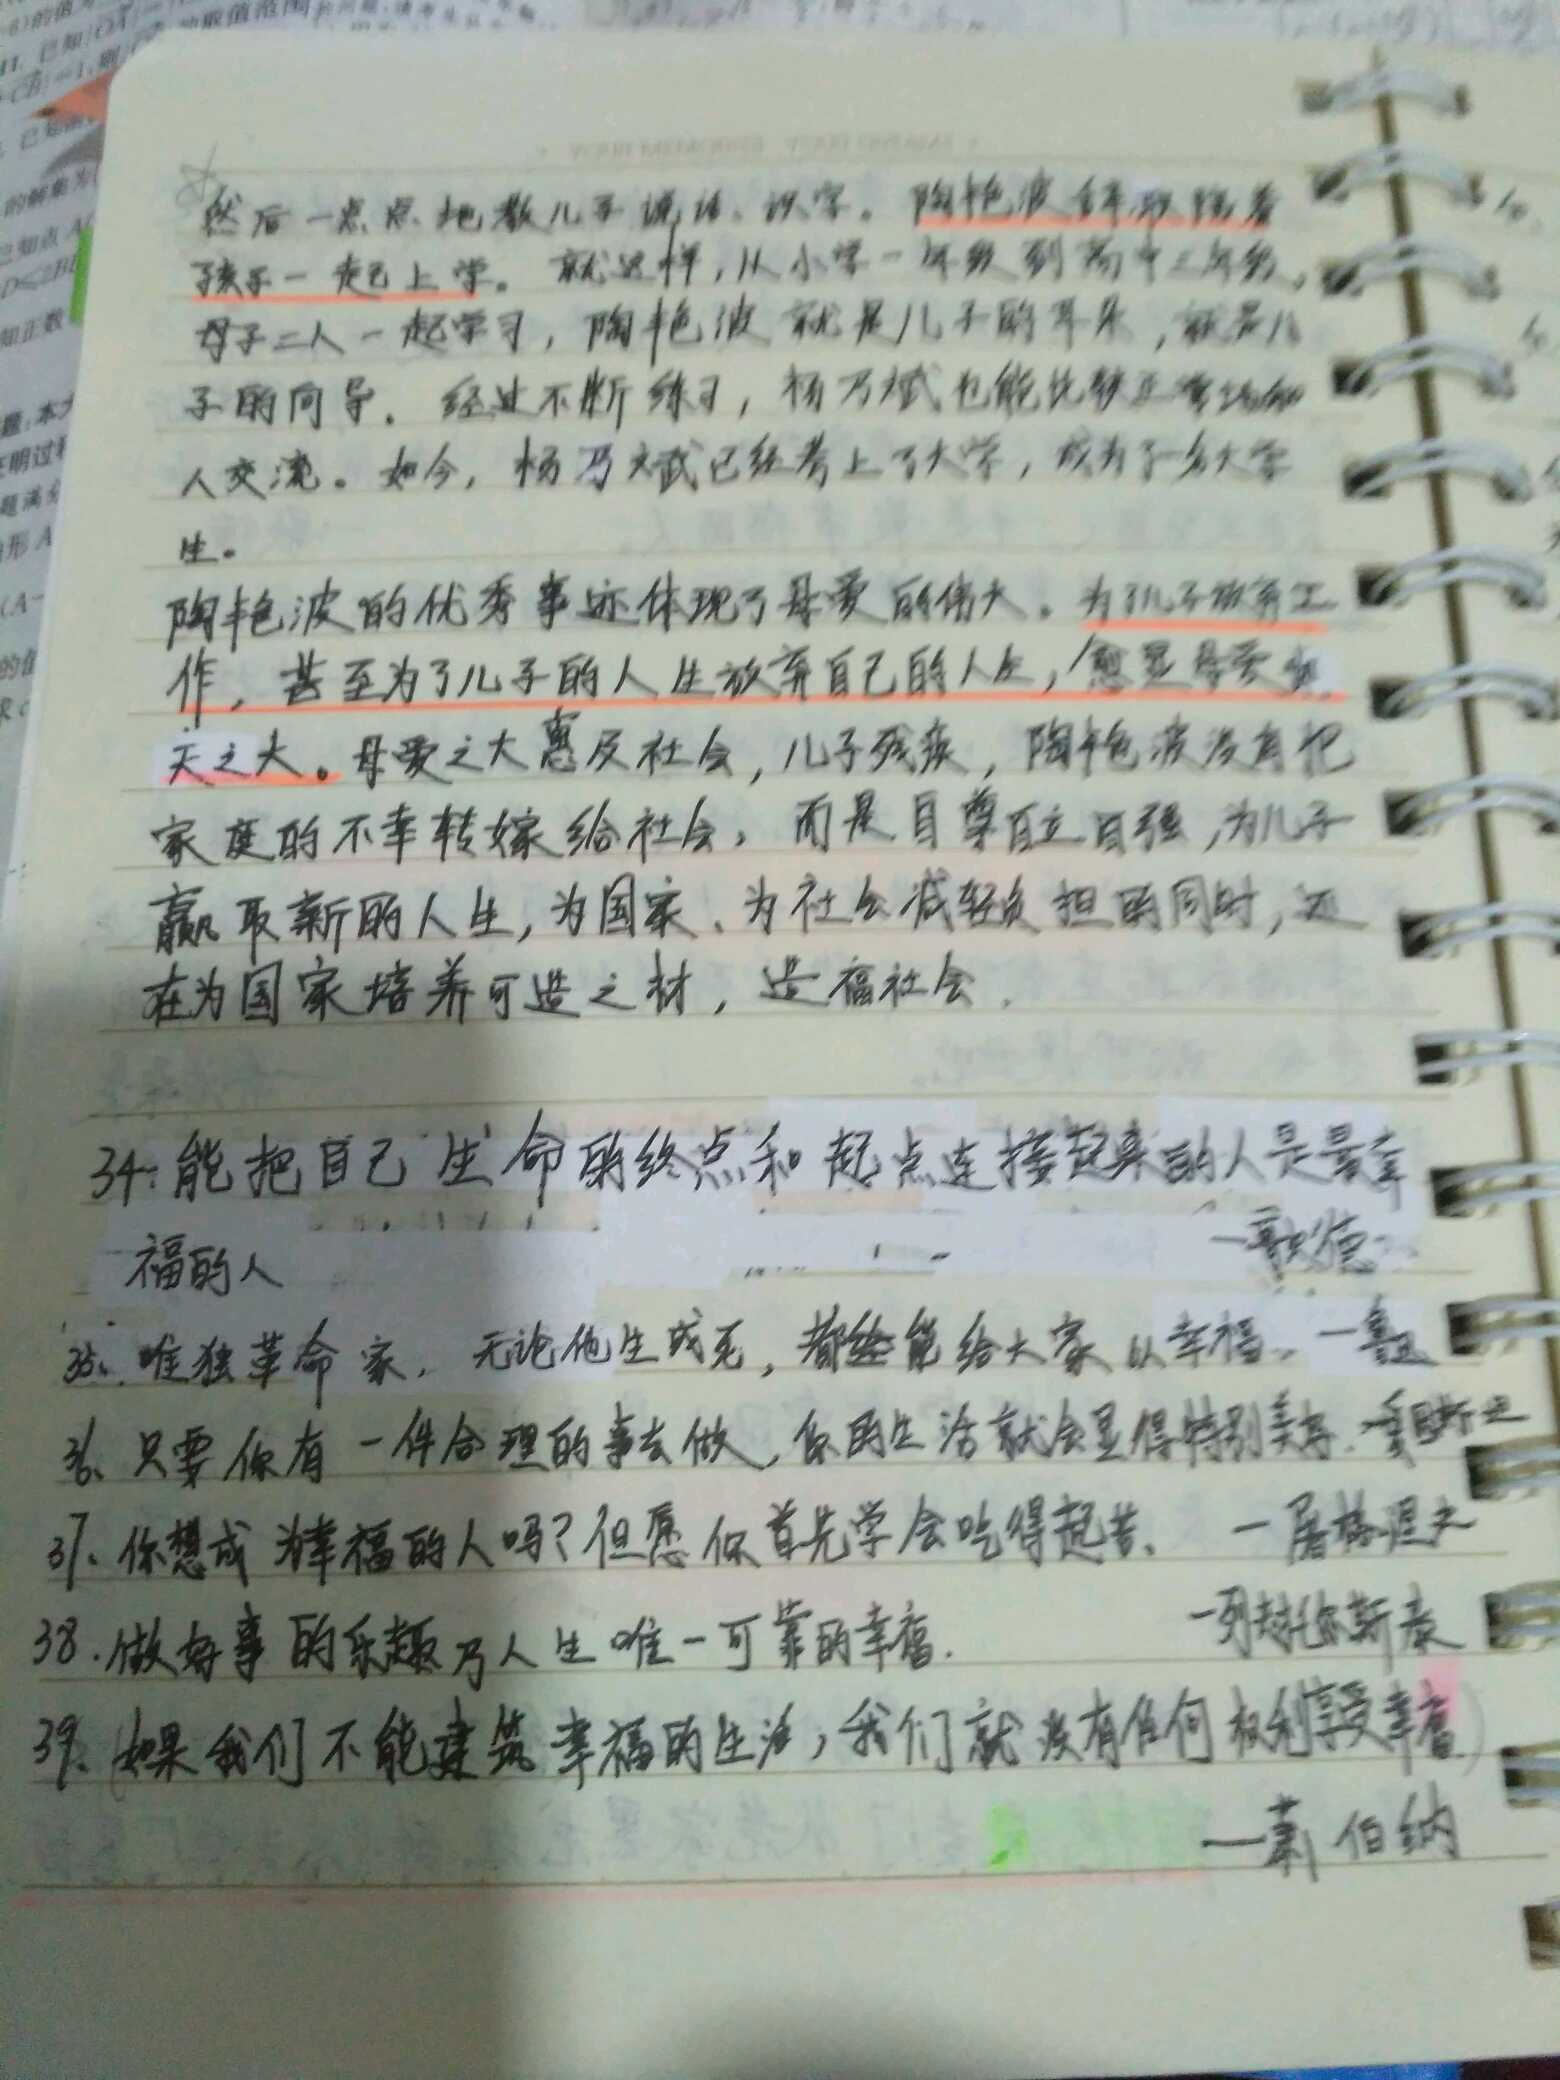 然后一点点地教儿子说话、识字。陶艳波全程陪着
孩子一起上学。就这样,从小学一年级到高中三年级,
母子二人一起学习,陶艳波就是儿子的耳朵,就是儿
子的向导。经过不断练习,杨乃斌也能比较正常地和
人交流。如今,杨乃斌已经考上了大学,成为了一名大学
生。
陶艳波的优秀事迹体现了母爱的伟大。为了儿子放弃工
作,甚至为了儿子的人生放弃自己的人生,愈显母爱
天之大。母爱之大惠及社会,儿子残疾,陶艳波没有把
家庭的不幸转嫁给社会,而是自尊自立自强,为儿子
赢取新的人生,为国家、为社会减轻负担的同时,还
在为国家培养可造之材,造福社会.
34.能把自己生命的终点和起点连接起来的人是最幸
福的人 —歌德
35、唯独革命家,无论他生或死,都能给大家以幸福。—鲁迅
36、只要你有一件合理的事去做,你的生活就会显得特别美好.—爱因斯坦
37、你想成为幸福的人吗?但愿你首先学会吃得起苦、—屠格涅夫
38.做好事的乐趣乃人生唯一可靠的幸福. —列夫托尔斯泰
39、(如果我们不能建筑幸福的生活,我们就没有任何权利享受幸福)
—萧伯纳